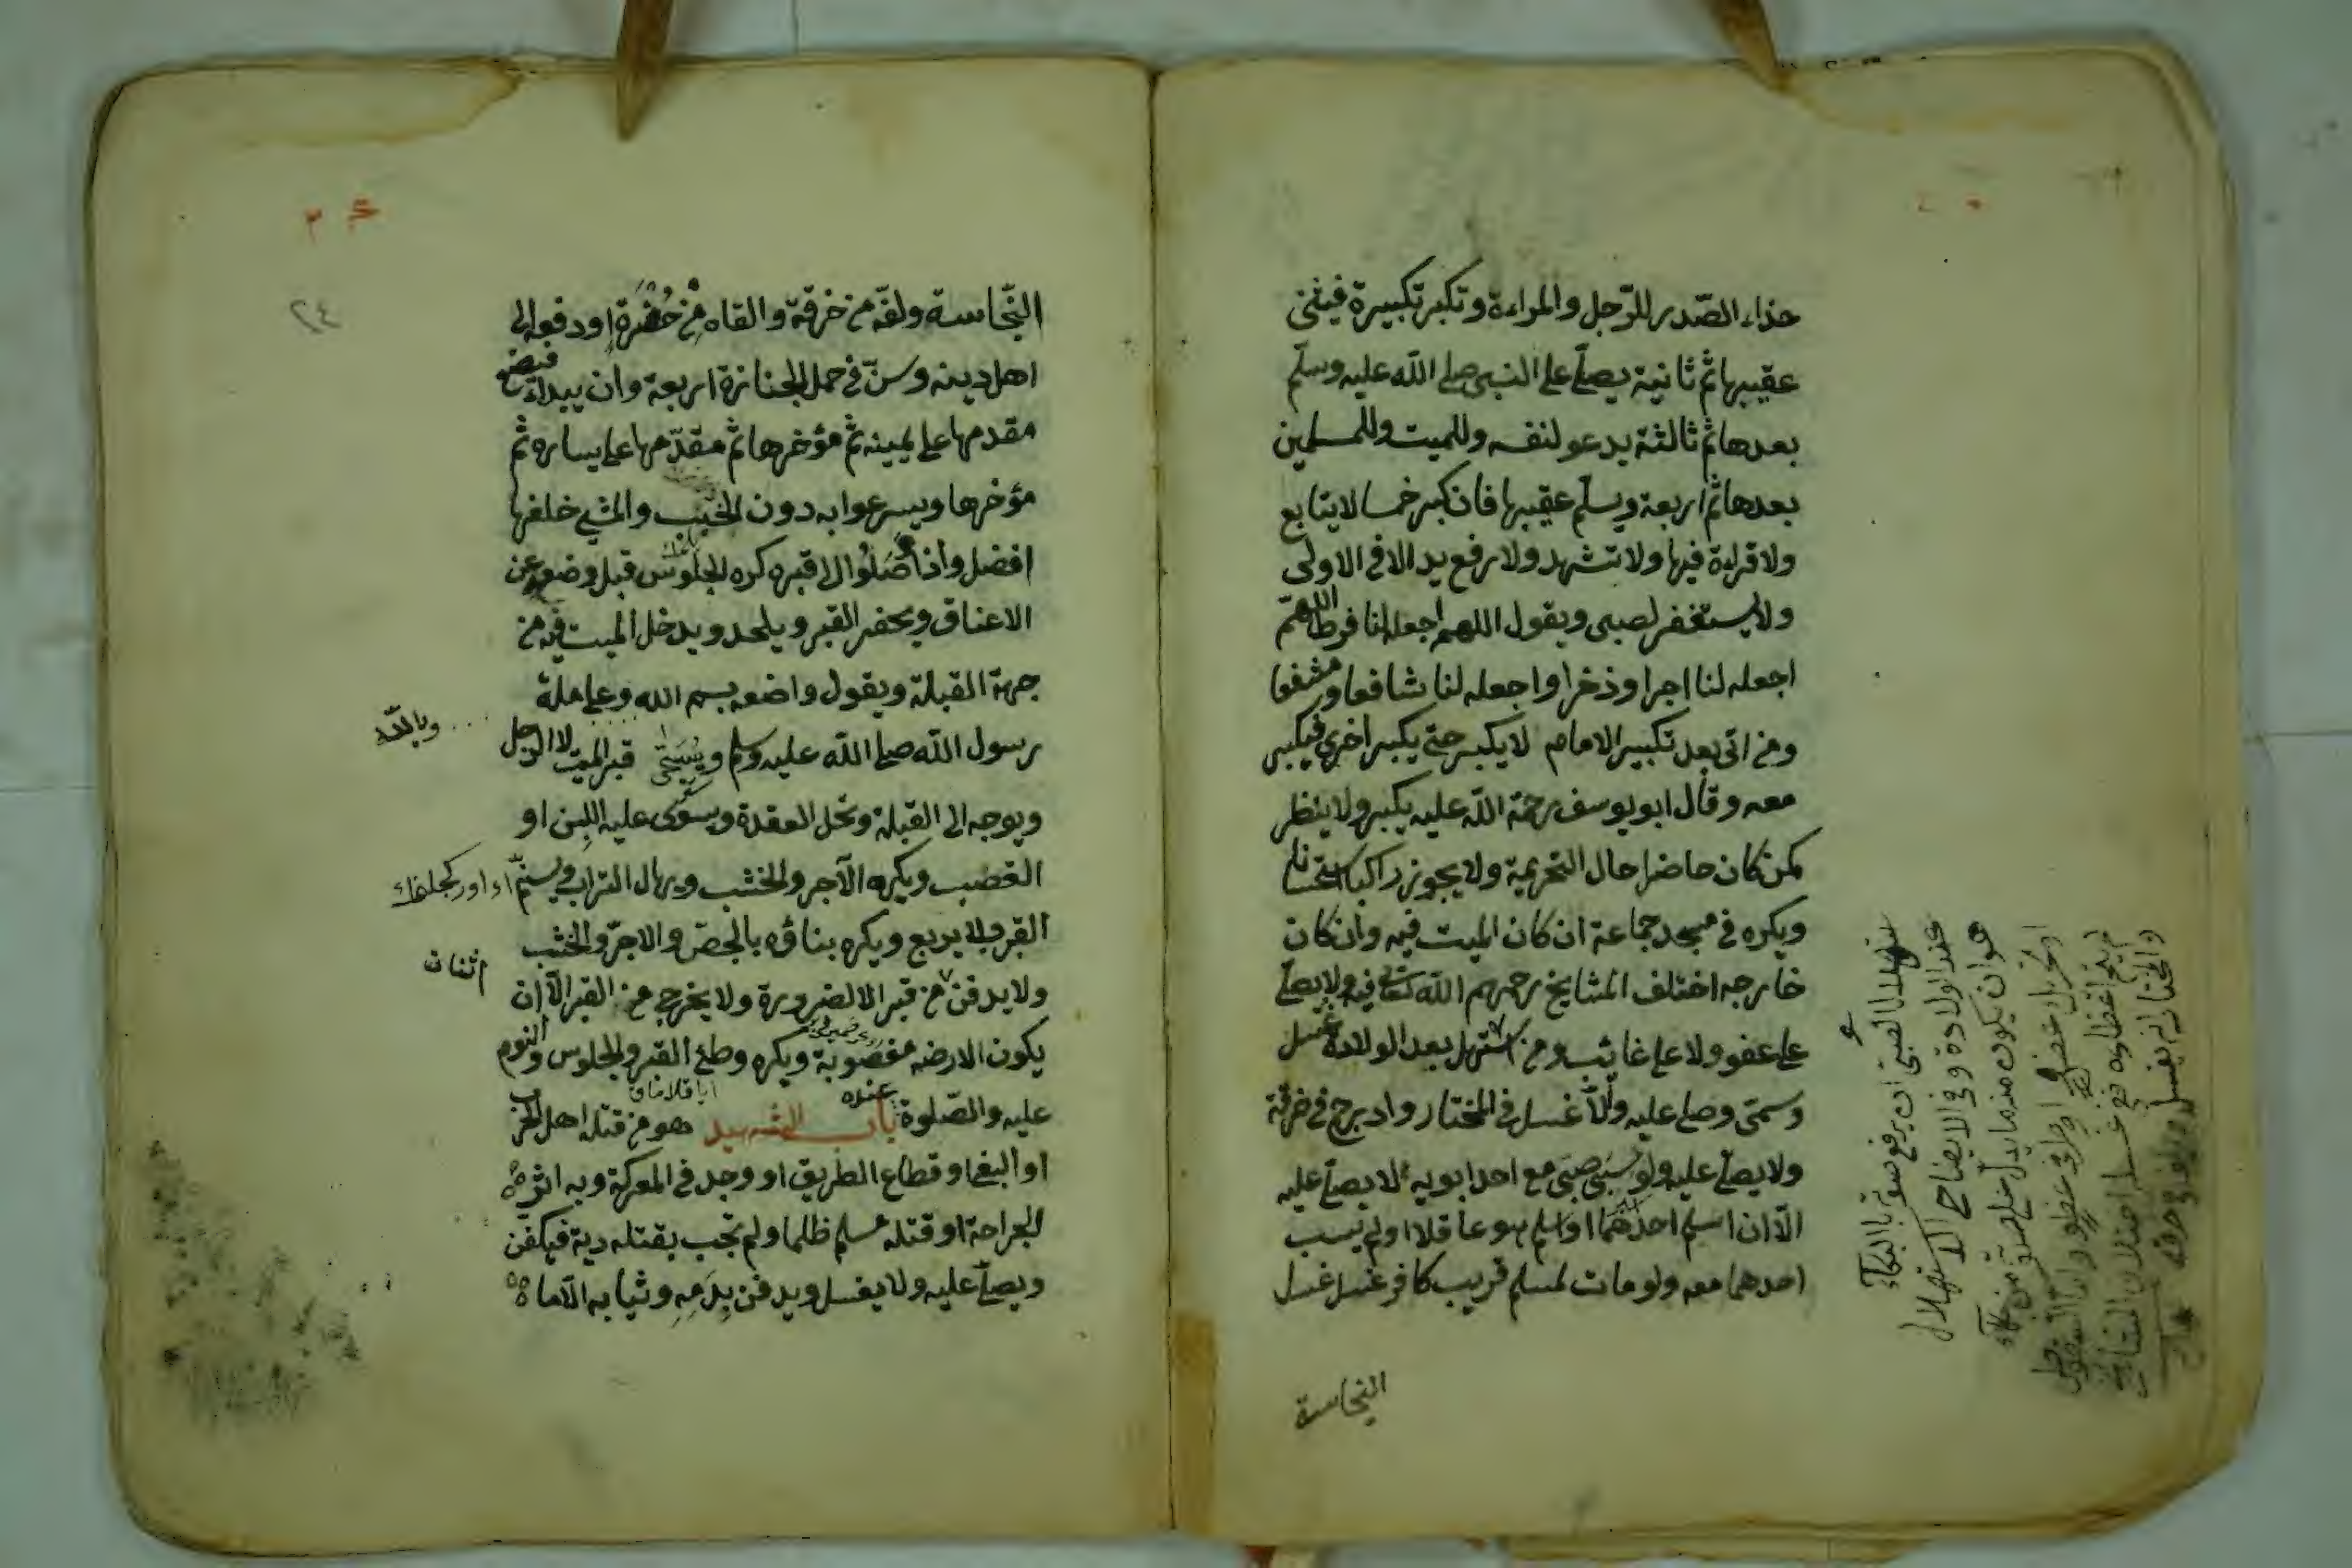 حذاء الصّدر للرّجل والمراءة وتكبر تكبيرة فيثنى
عقيبها ثم ثانية يصلّي على النبى صلى اللّه عليه وسلّم
بعدها ثم ثالثة يدعو لنفسه وللميت وللمسلمين
بعدها ثم اربعة ويسلّم عقيبها فان كبر خمسا لا يتابع
ولا قراءة فيها ولا تشهد ولا رفع يد الا في الاولى
ولا يستغفر لصبى ويقول اللهم اجعله لنا فرطا اللهمّ
اجعله لنا اجرا وذخرا واجعله لنا شافعا ومشفعا
ومن اتى بعد تكبير الامام لا يكبر حتى يكبر اخرى فيكبر
معه وقال ابو يوسف رحمة اللّه عليه يكبر ولا ينظر
كمن كان حاضرا حال التحريمة ولا يجوز راكبا استحسانا
ويكره في مسجد جماعة ان كان الميت فيه وان كان
خارجه اختلف المشايخ رحمهم اللّه تعالى فيه ولا يصلّي
على عضو ولا على غائب ومن استهل بعد الولادة غسل
وسمّى وصلى عليه والّا غسل في المختار وادرج في خرقة
ولا يصلّى عليه ولو سبى صبى مع احد ابويه لا يصلّى عليه
الّا ان اسلم احدهما او اسلم هو عاقلا او لم يسب
احدهما معه ولو مات لمسلم قريب كافر غسل غسل
النجاسة
استهلال الصبى ان يرفع صوته بالبكاء
عند الولادة وفي الايضاح الاستهلال
هو ان يكون منه ما يدل على حيوته من بكاء
او تحريك عضو
والمختار انه يغسل ويلف في خرقة
٢٤
النّجاسة ولفّه في خرقة والقاه في حفرة او دفعه الى
اهل دينه وسنّ في حمل الجنازة اربعة وان يبداء فيضع
مقدمها على يمينه ثم مؤخرها ثم مقدّمها على يساره ثم
مؤخرها ويسرعوا به دون الخبب والمشي خلفها
افضل واذا وصلوا الى قبره كره الجلوس قبل وضعه عن
الاعناق ويحفر القبر ويلحد ويدخل الميت فيه من
جهة القبلة ويقول واضعه بسم الله وعلى ملة
وبالله
رسول اللّه صلى اللّه عليه وسلم ويسجّى قبر الميت لا الرجل
ويوجه الى القبلة وتحل العقدة ويسوّى عليه اللبن او
القصب ويكره الآجر والخشب ويهال التراب ويسنّم
القبر ولا يربع ويكره بناؤه بالجصّ والاجرّ والخشب
اثنان
ولا يدفن في قبر الا لضرورة ولا يخرج من القبر الّا ان
يكون الارض مغصوبة ويكره وطئ القبر والجلوس والنوم
عليه والصّلوة عنده باب الشهيد هو من قتله اهل الحرب
او البغى او قطاع الطريق او وجد في المعركة وبه اثر
الجراحة او قتله مسلم ظلما ولم تجب بقتله دية فيكفن
ويصلّى عليه ولا يغسل ويدفن بدمه وثيابه الّا ما